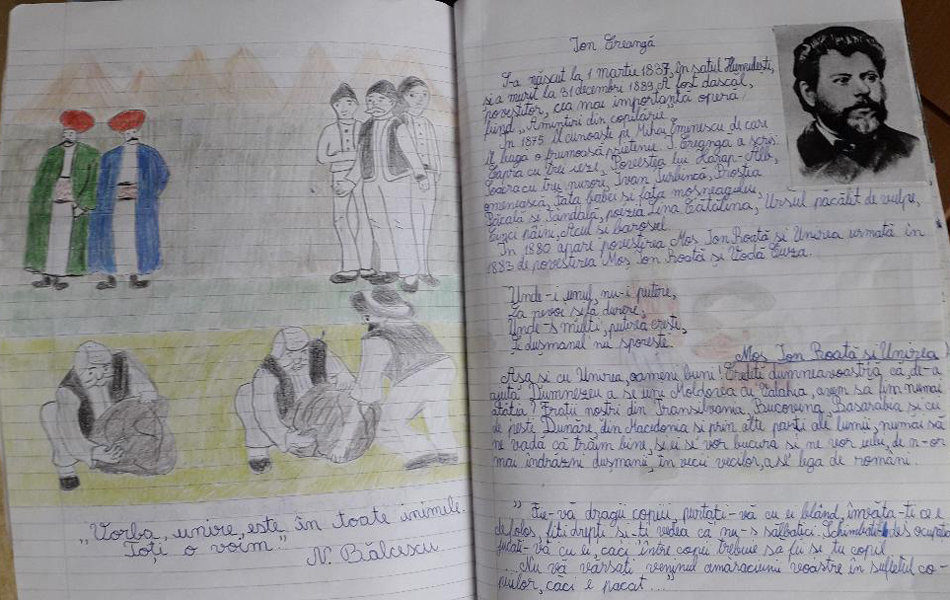 „Vorba, unire, este în toate inimile.
Toți o voim."
N. Bălcescu
Ion Creangă
S-a născut la 1 martie 1837, în satul Humulești,
și a murit la 31 decembrie 1889. A fost dascăl,
povestitor, cea mai importantă operă
fiind „Amintiri din copilărie".
În 1875 îl cunoaște pe Mihai Eminescu de care
îl leagă o frumoasă prietenie. I. Creangă a scris:
Capra cu trei iezi, Povestea lui Harap-Alb,
Soacra cu trei nurori, Ivan Turbincă, Prostia
omenească, Fata babei și fata moșneagului,
Păcală și Tândală, poezia Lina Cătălina, Ursul păcălit de vulpe,
Cinci pâini, Acul și barosul.
În 1880 apare povestirea Moș Ion Roată și Unirea urmată în
1883 de povestirea Moș Ion Roată și Vodă Cuza.
Unde-i unul, nu-i putere,
La nevoi și la durere,
Unde-s mulți, puterea crește,
Și dușmanul nu sporește.
Moș Ion Roată și Unirea
Așa și cu Unirea, oameni buni! Credeți dumneavoastră că, de-a
ajuta Dumnezeu a se uni Moldova cu Valahia, avem să fim numai
atâția? Frații noștri din Transilvania, Bucovina, Basarabia și cei
de peste Dunăre, din Macedonia și prin alte părți ale lumii, numai să
ne vadă că trăim bine, și ei se vor bucura și ne vor iubi, de n-or
mai îndrăzni dușmanii, în vecii vecilor, a se lega de români.
copii, purtați-vă cu ei blând, învăța-ți ce e
de folos, fiți drepți și-ți vedea că nu-s sălbatici. des ocupația
jucați-vă cu ei, căci între copii trebuie să fii și tu copil
...Nu vă vărsați veninul amărăciunii voastre în sufletul co-
piilor, căci e păcat..."